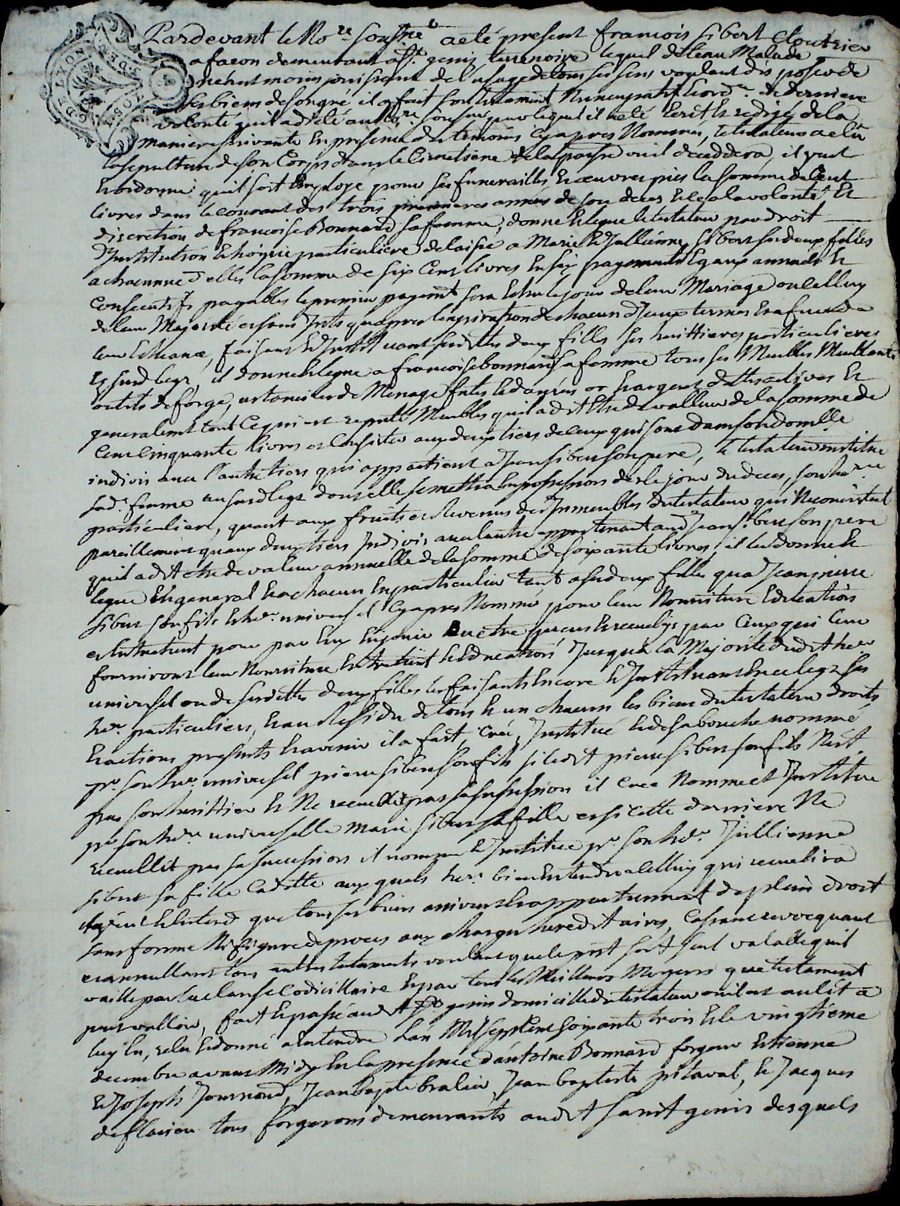 Pardevant le No.re soussigné a eté present françois sibert Cloutrier
a facon demeurant a St. genis terrenoire lequel detteau Malade
neant moins jouissant de l'usage de tous ses sens voulant disposer de
ses biens de son gré il a fait son testament Nuncupatif et ord.re de derniere
volonté qu'il a dicté aud. No.re soussigné par lequel il a eté ecrit et redigé de la
maniere suivante En presence des temoins Cy apres Nommés, le testateur a elu
la sepulture de son Corps dans le Cimetiere de la paroisse ou il deceddera, il veut
Et ordonne qu'il soit Employé pour ses funerailles Et oeuvres pies la somme de Cent
livres dans le courant des trois premieres années de son deces Et Ce a la volonté Et
discretion de françoise Bonnard sa femme, donne Et legue le testateur par droit
d'Institution Et hoirie particuliere delaissé a Marie Et Jullienne sibert ses deux filles
a chacunne d'elles la somme de six Cent livres En six payements Egaux annuels Et
Consecutifs payables le premier payement sera Et the le jour de leur Mariage ou celluy
de leur Majorité et sans Interets qu'apres l'expiration de chacun d'Iceux termes Et a faute de
leur Echeance, faisant Et Instituant sesdittes deux filles ses heritieres particulieres
Et susd. legs, il donne Et legue a francoise bonnard sa femme tous ses Meubles Meublants
outils de forge, ustancilles de Menage dettes et Denrées or Et argent dettes actives Et
generalement tout Ce qui est reputé Meubles qu'il a dit Etre de valleur de la somme de
Cent Cinquante livres et Consister aux deux tiers de Ceux qui sont dans son domicille
indivis avec l'autre tiers qui appartient a Jean sibert son pere, le testateur institue
sad. femme au susd. legs dont elle se mettra En possession des le jour du deces, son her.re
particuliere, quant aux fruits et Revenus des Immeubles du testateur qui Ne consistent
pareillement qu'aux deux tiers Indivis avec l'autre appartenant aud. Jean sibert son pere
qu'il a dit etre de valeur annuelle de la somme de soixante livres, il les donne Et
legue En general Et a chacun En particulier tant a sesd. deux filles qu'a Jean pierre
sibert son fils Et her. universel Cy apres Nommé pour leur Nourriture Education
et Entretient pour par Eux En jouir Et etre perçus Et receuillis par Ceux qui leur
fourniront leur Nourriture Entretient Et Education Jusques a la Majorité dud. her
universel ou de sesdittes deux filles les faisant Encore Et Instituant En ce legs ses
her. particuliers, Et au Residu de tous Et un chacuns les biens du testateur droits
Et actions presents Et avenir il a fait, Créé, Institué Et de sa bouche nommé
p.r son her. universel pierre sibert son fils si led. pierre sibert son fils N'est
pas son heritier Et Ne receuillit pas sa succession il Crée Nomme Et Institue
p.r son her. universelle marie sibert sa fille et si Cette derniere Ne
receuillit pas sa succession il nomme Et Institue p.r son her. Jullienne
sibert sa fille Cadette auxquels her. bien Entendu a Celluy qui receuillira
Et entend que tous ses biens arrivent Et appartiennent de plein droit
sans forme Ni figure de proces aux charges hereditaires, Cassant revocquant
et annullant tous autres testaments voulant que le present soit seul valable qu'il
vaille par la clause Codicillaire Et par tous les Meilleurs Moyens que testament
peut valloir, fait Et passé aud. St. genis domicille du testateur ou il est au lit a
luy lu, relu Et donné a Entendre L'an Mil sept Cent soixante trois Et le vingtieme
decembre avant Midy En la presence d'antoine Bonnard forgeur Etienne
Et Joseph Journoud, Jean baptiste bralin, Jean baptiste pitaval, Et Jacques
deflacieu tous forgerons demeurants aud. St saint genis desquels